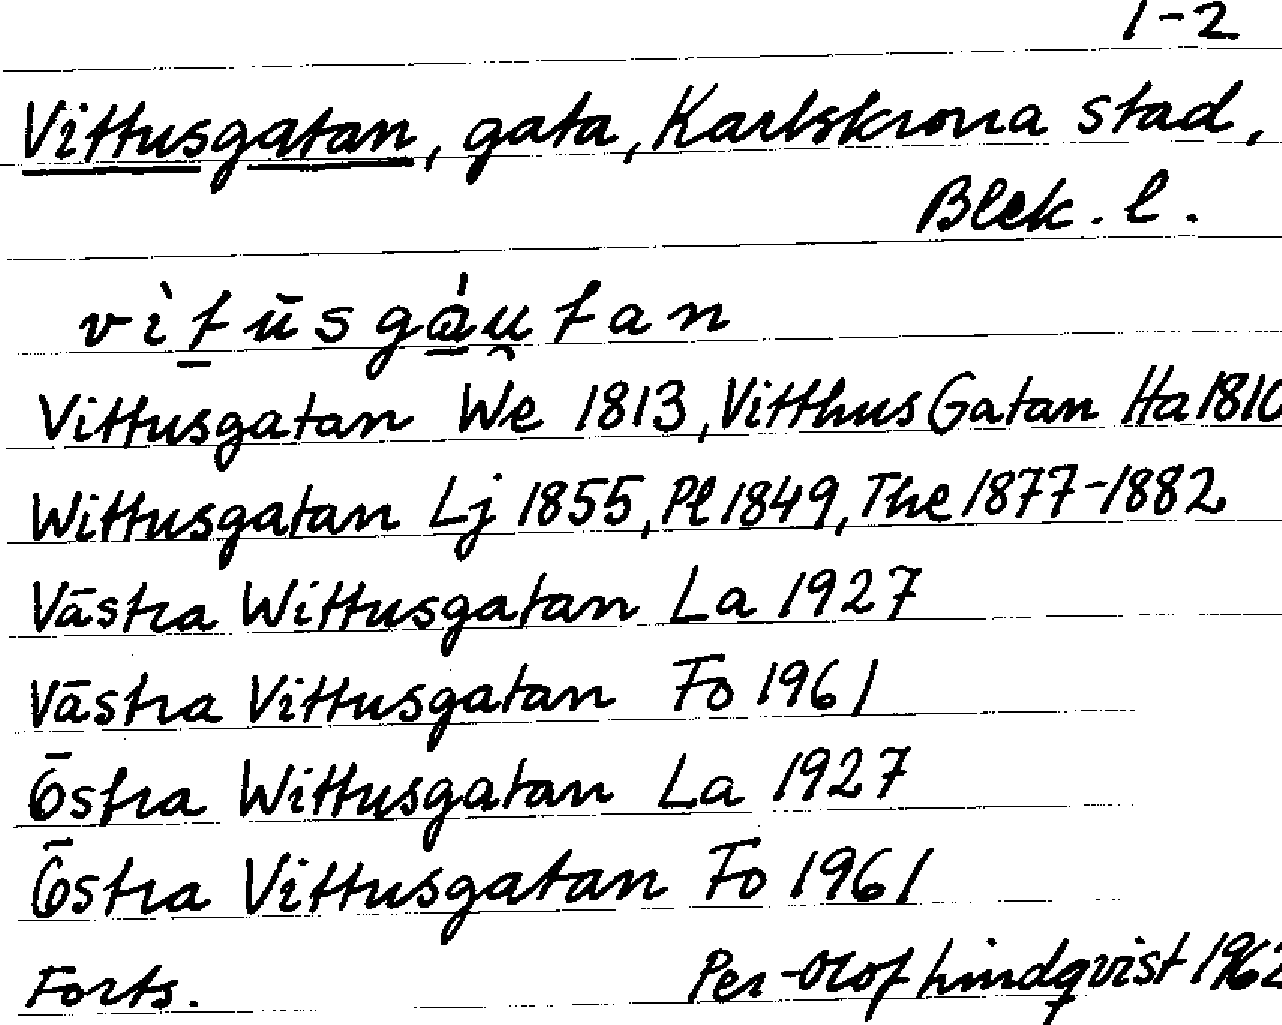 1-2
Vittusgatan, gata, Karlskrona stad,
Blek. l.
vìt̲ūsgá̲u̯tan
Vittusgatan We 1813, Vitthus Gatan Ha 1810
Wittusgatan Lj 1855, Pl 1849, The 1877-1882
Västra Wittusgatan La 1927
Västra Vittusgatan Fo 1961
Östra Wittusgatan La 1927
Östra Vittusgatan Fo 1961
Forts. Per-Olof Lindqvist 1962